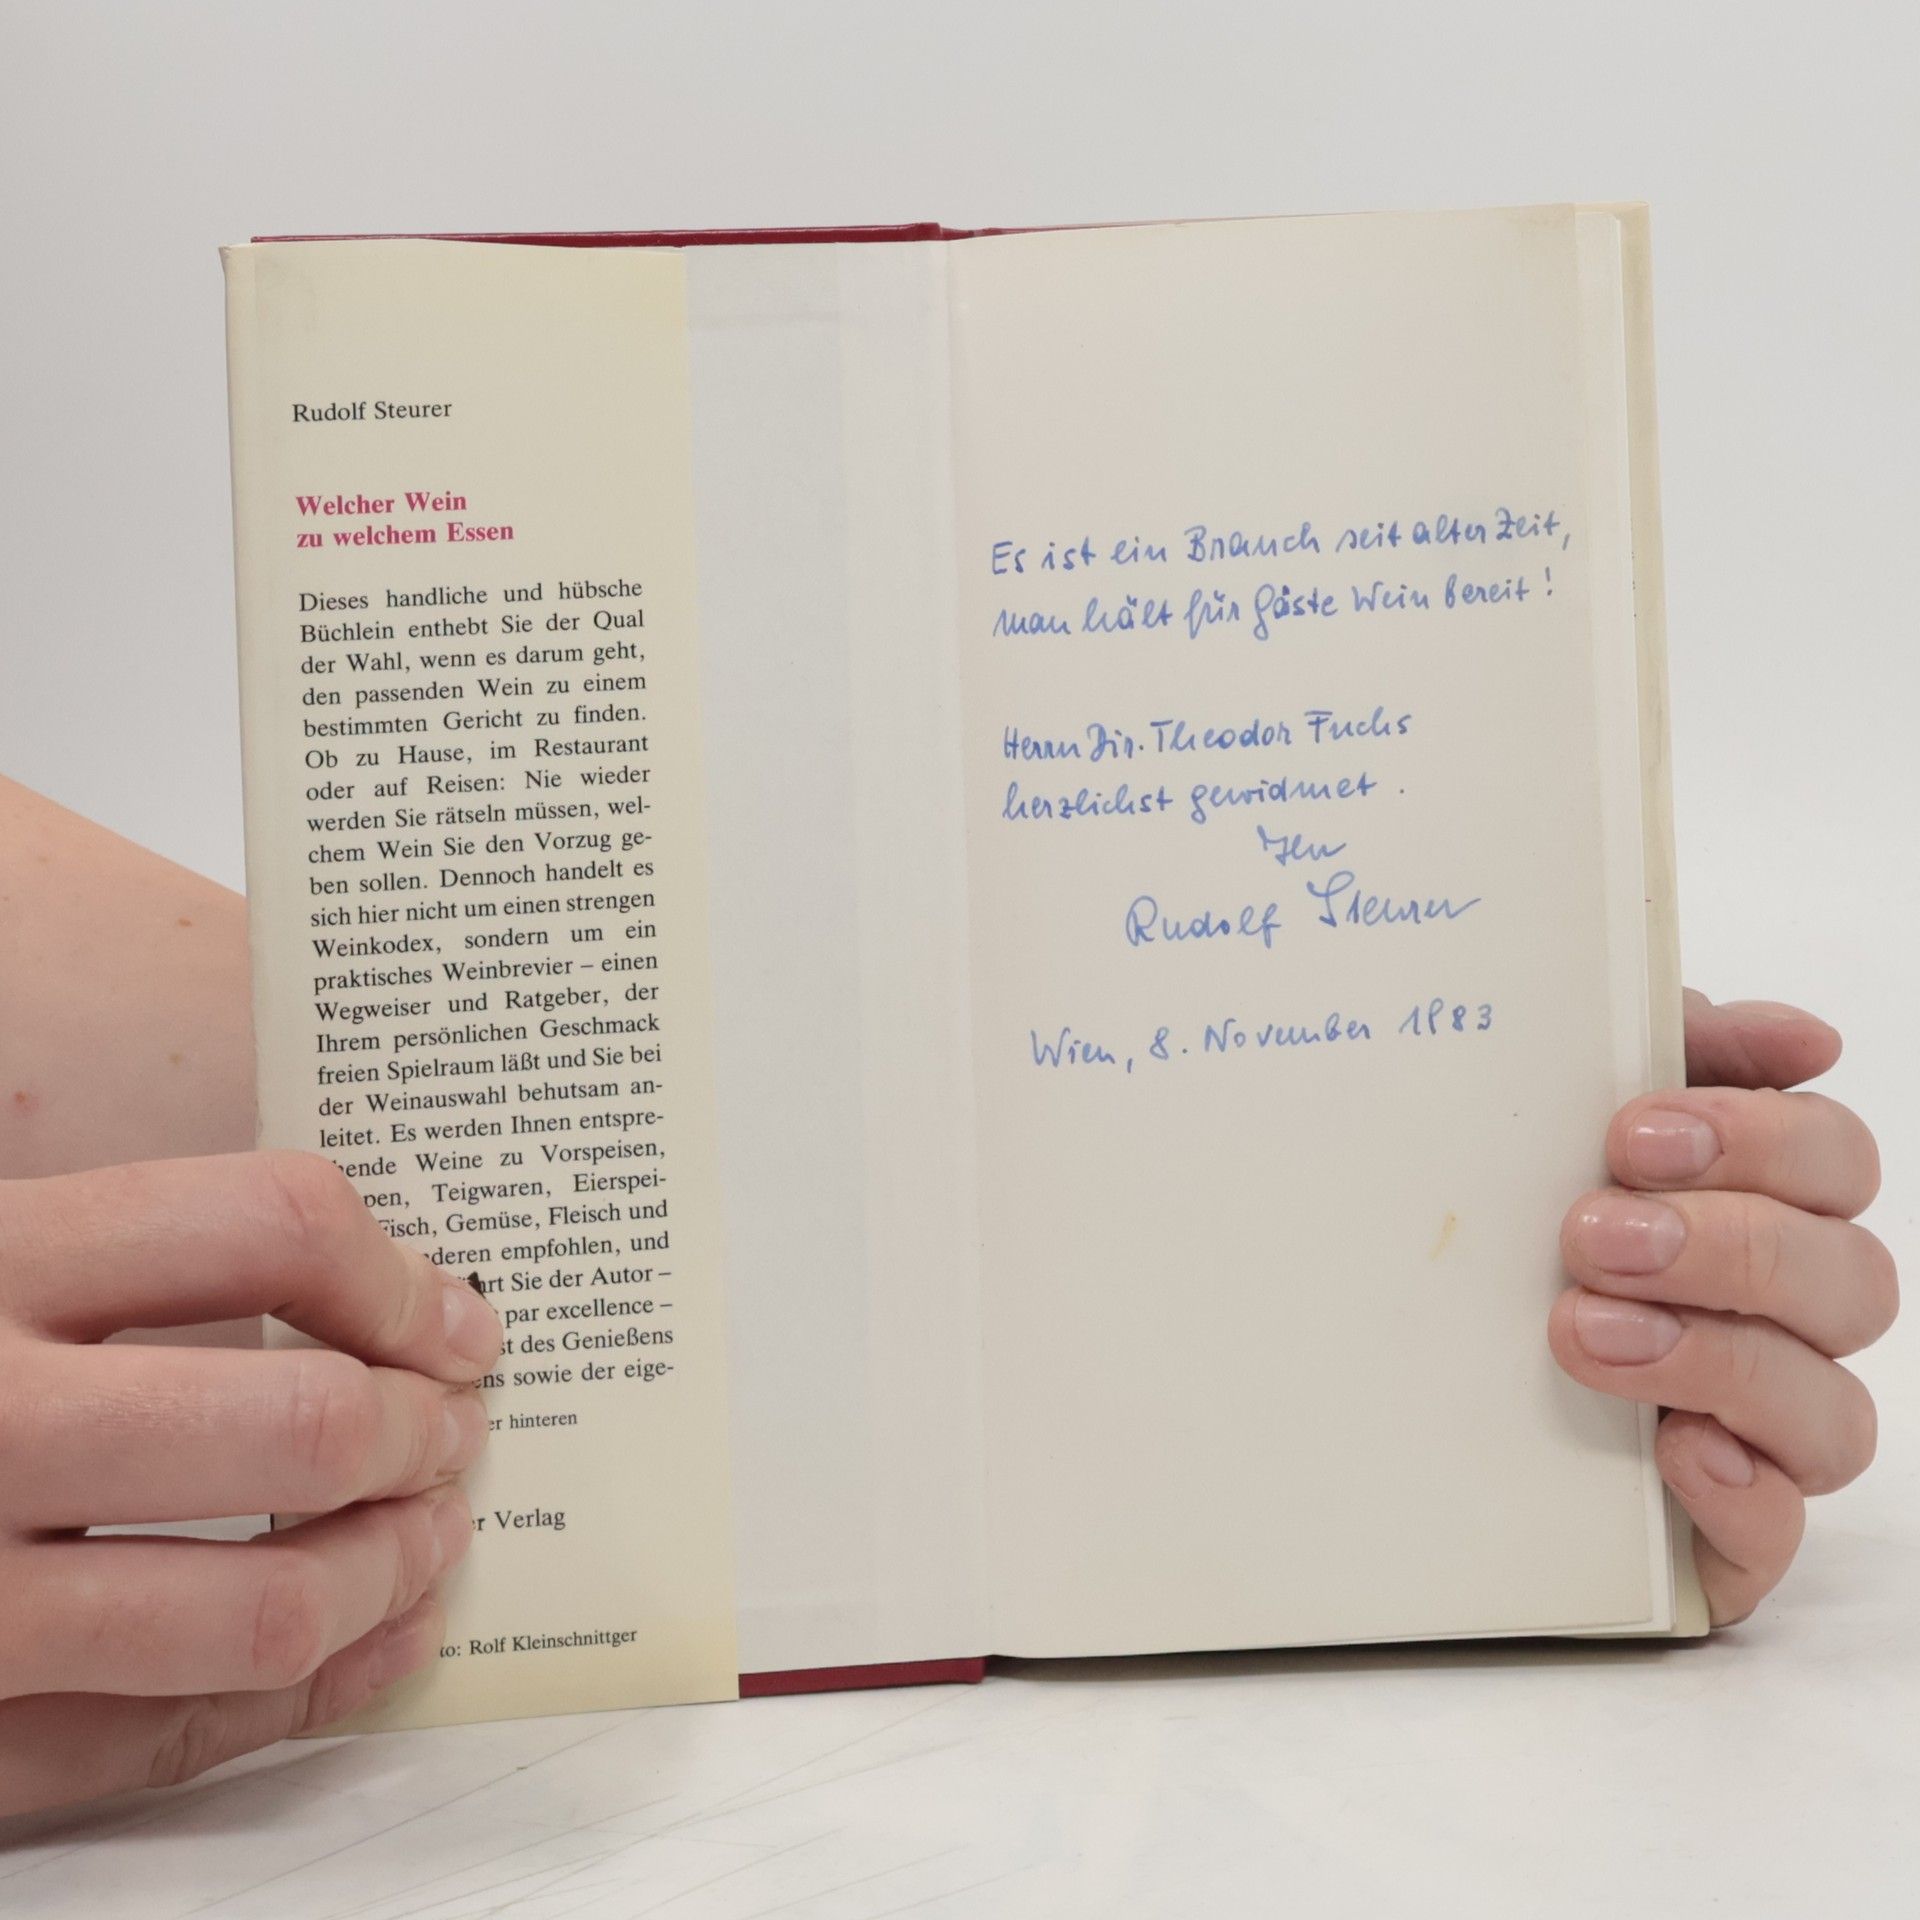 Rudolf Steurer
Welcher Wein
zu welchem Essen
Dieses handliche und hübsche
Büchlein enthebt Sie der Qual
der Wahl, wenn es darum geht,
den passenden Wein zu einem
bestimmten Gericht zu finden.
Ob zu Hause, im Restaurant
oder auf Reisen: Nie wieder
werden Sie rätseln müssen, wel-
chem Wein Sie den Vorzug ge-
ben sollen. Dennoch handelt es
sich hier nicht um einen strengen
Weinkodex, sondern um ein
praktisches Weinbrevier – einen
Wegweiser und Ratgeber, der
Ihrem persönlichen Geschmack
freien Spielraum läßt und Sie bei
der Weinauswahl behutsam an-
leitet. Es werden Ihnen entspre-
hende Weine zu Vorspeisen,
pen, Teigwaren, Eierspei-
Fisch, Gemüse, Fleisch und
deren empfohlen, und
hrt Sie der Autor –
par excellence –
st des Genießens
ens sowie der eige-
er hinteren
er Verlag
to: Rolf Kleinschnittger
Es ist ein Brauch seit alter Zeit,
man hält für Gäste Wein bereit!
Herrn Dir. Theodor Fuchs
herzlichst gewidmet.
Ihr
Rudolf Steurer
Wien, 8. November 1983